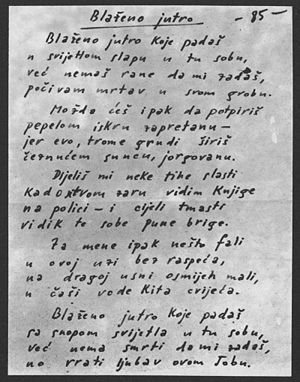 Blaženo jutro
— 85 —
Blaženo jutro koje padaš
u svijetlom slapu u tu sobu,
već nemaš rane da mi zadaš,
počivam mrtav u svom grobu.
Možda ćeš ipak da potpiriš
pepelom iskru zapretanu —
jer evo, trome grudi širiš
čeznućem suncu, jorgovanu.
Dijeliš mi neke tihe slasti
kad o tvom žaru vidim knjige
na polici — i cijeli tmasti
vidik te sobe pune brige.
Za mene ipak nešto fali
u ovoj uzi bez raspeća,
na dragoj usni osmijeh mali,
u čaši vode kita cvijeća.
Blaženo jutro koje padaš
sa snopom svijetla u tu sobu,
već nema smrti da mi zadaš,
no vrati ljubav ovom Jobu.